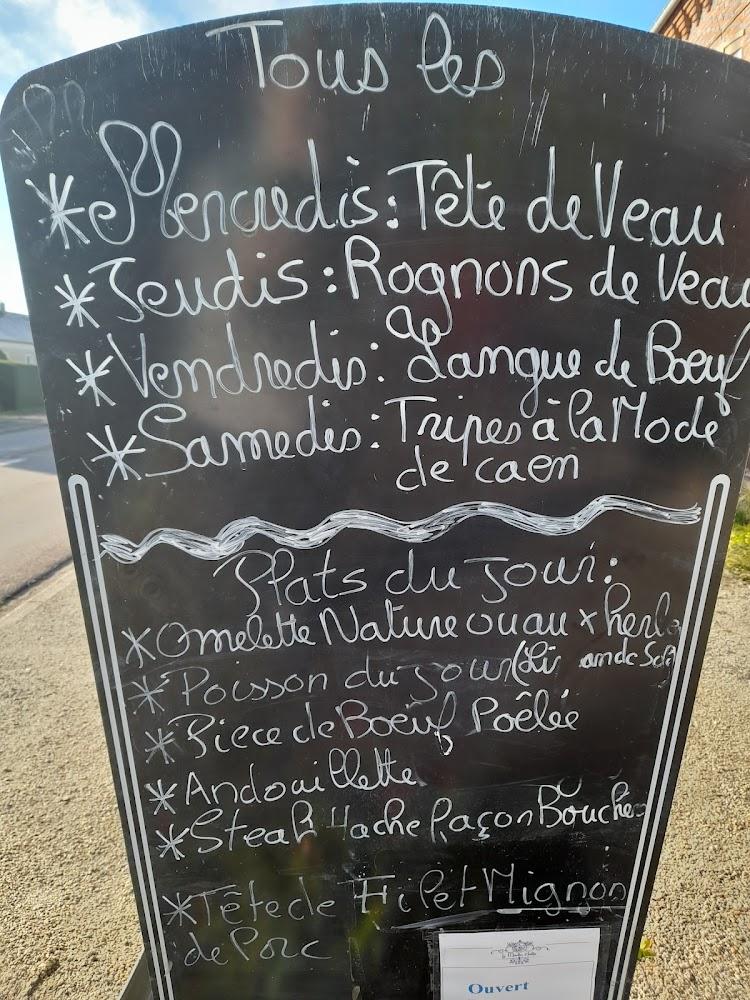 Tous les
* Mercredis: Tête de Veau
* Jeudis: Rognons de Veau
* Vendredis: Langue de Boeuf
* Samedis: Tripes à la Mode
de caen
Plats du jour:
* Omelette Nature ou aux herbe
* Poisson du jour
* Piece de Boeuf Poêlée
* Andouillette
* Steak Hache Façon Boucher
* Tête de Filet Mignon
de Porc
Ouvert